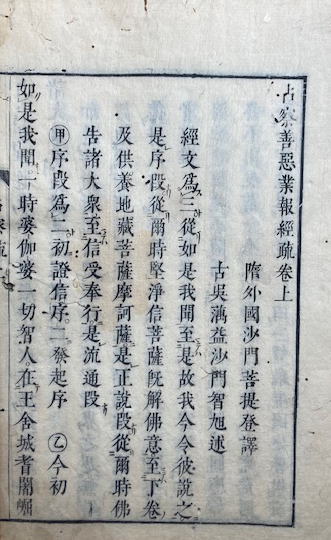 占察善惡業報經疏卷上
隋外國沙門菩提登譯
古吳蕅益沙門智旭述
經文為三從如是我聞至是故我今令彼說之
是序段從爾時堅淨信菩薩既解佛意至下卷
及供養地藏菩薩摩訶薩是正說段從爾時佛
告諸大衆至信受奉行是流通段
㊙甲序段為二初證信序二發起序 乙今初
如是我聞一時婆伽婆一切智人在王舍城耆闍崛